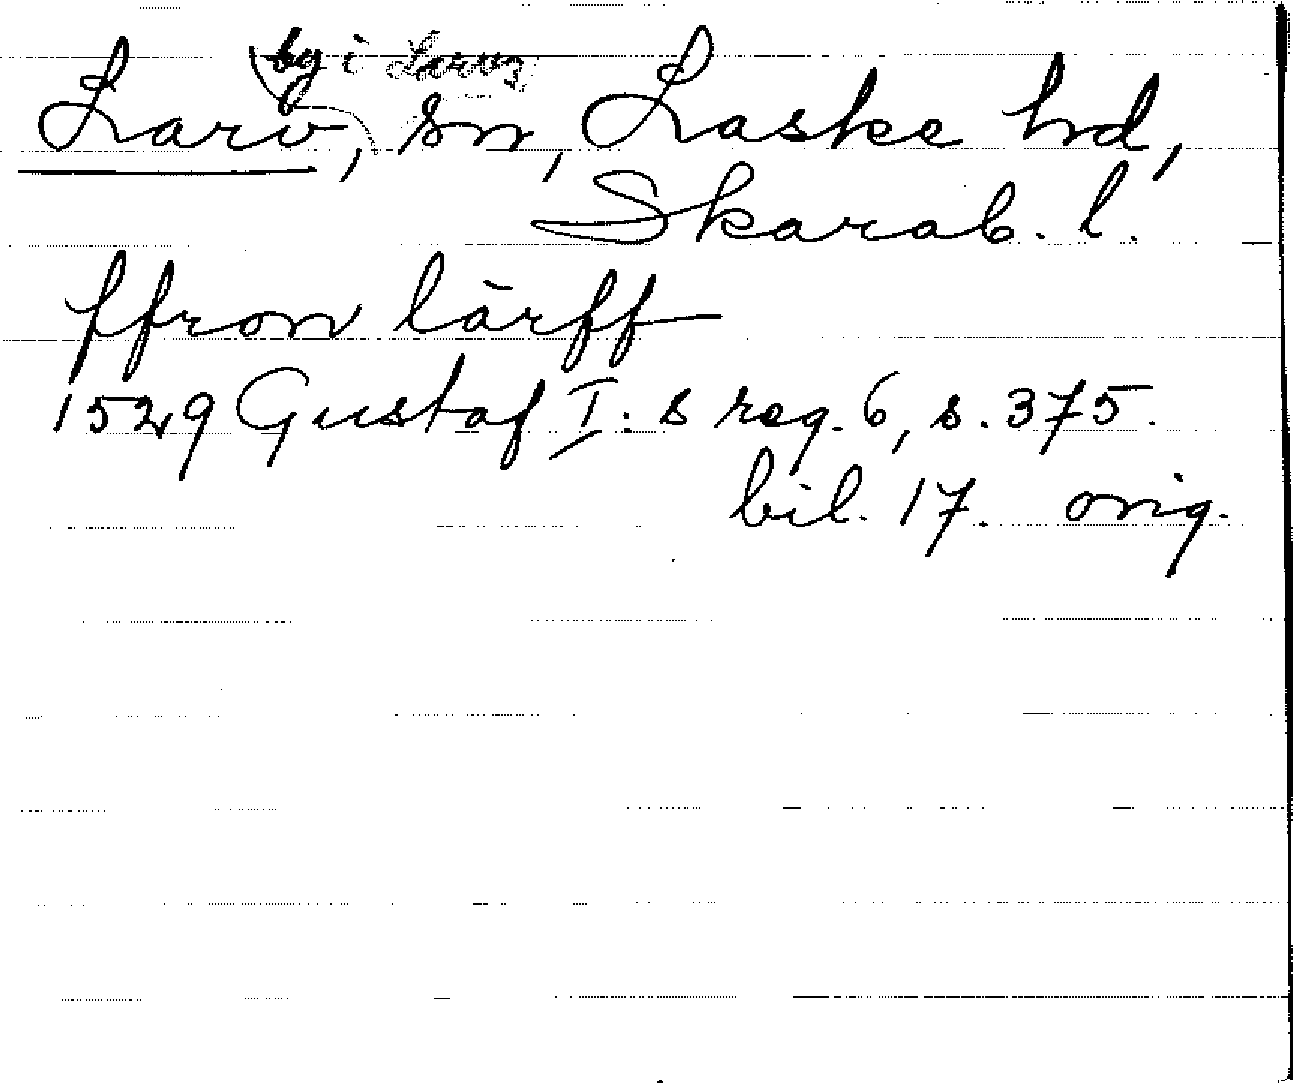 by i Larvs
Larv, sn, Laske hd,
Skarab. l.
ffron lärff
1529 Gustaf I:s reg. 6, s. 375.
bil. 17. orig.